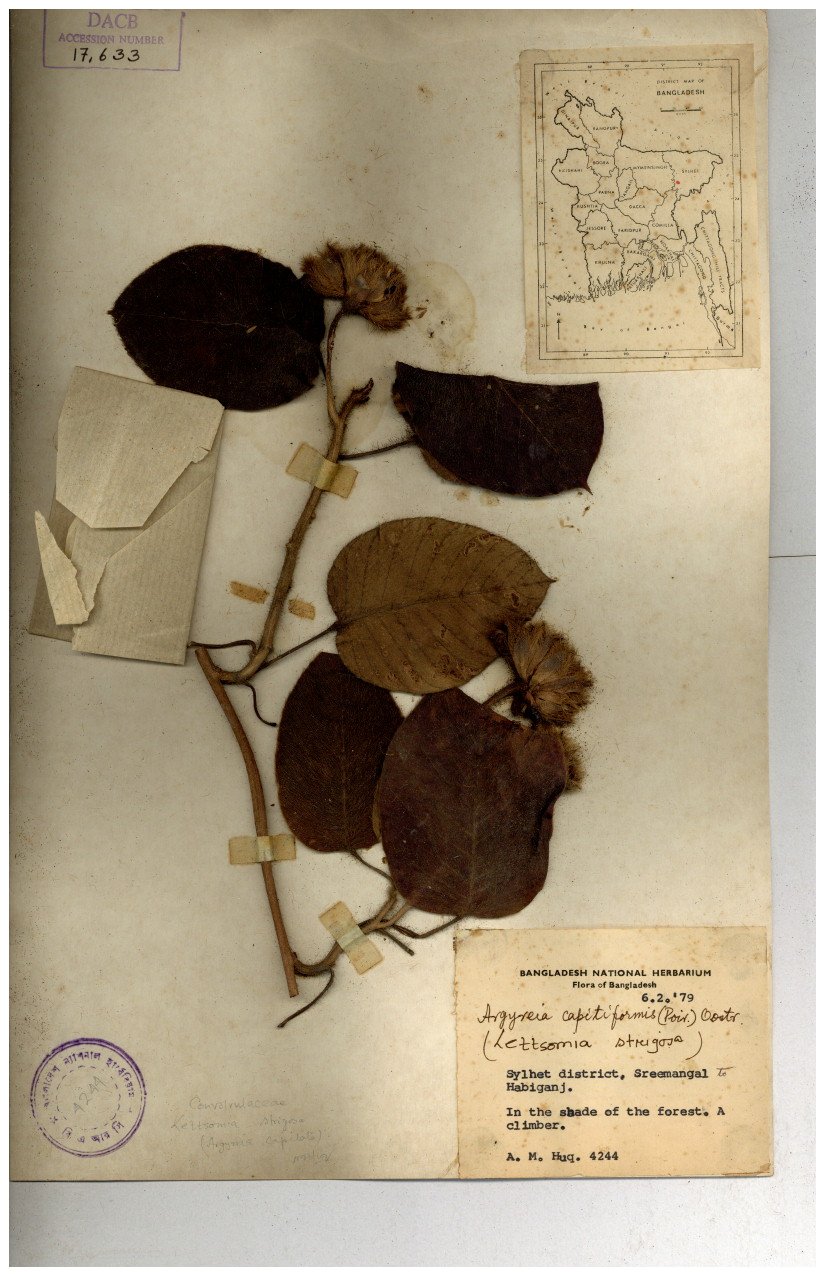 DACB
ACCESSION NUMBER
17,633
DISTRICT MAP OF
BANGLADESH
DINAJPUR
RANGPUR
BOGRA
RAJSHAHI
MYMENSINGH
SYLHET
PABNA
KUSHTIA
DACCA
JESSORE
FARIDPUR
COMILLA
KHULNA
Bay of Bengal
BANGLADESH NATIONAL HERBARIUM
Flora of Bangladesh
6.2.'79
Argyreia capitiformis (Poir.) Oostr.
(Lettsomia strigosa)
Sylhet district, Sreemangal to
Habiganj.
In the shade of the forest. A
climber.
A. M. Huq. 4244
4244
Convolvulaceae
Lettsomia strigosa
(Argyreia capitata)